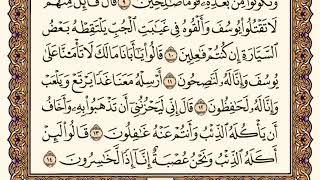 وَتَكُونُوا۟ مِنۢ بَعْدِهِۦ قَوْمًا صَٰلِحِينَ ٩ قَالَ قَآئِلٌ مِّنْهُمْ
لَا تَقْتُلُوا۟ يُوسُفَ وَأَلْقُوهُ فِى غَيَٰبَتِ ٱلْجُبِّ يَلْتَقِطْهُ بَعْضُ
ٱلسَّيَّارَةِ إِن كُنتُمْ فَٰعِلِينَ ١٠ قَالُوا۟ يَٰٓأَبَانَا مَا لَكَ لَا تَأْمَ۫نَّا عَلَىٰ
يُوسُفَ وَإِنَّا لَهُۥ لَنَٰصِحُونَ ١١ أَرْسِلْهُ مَعَنَا غَدًا يَرْتَعْ وَيَلْعَبْ
وَإِنَّا لَهُۥ لَحَٰفِظُونَ ١٢ قَالَ إِنِّى لَيَحْزُنُنِىٓ أَن تَذْهَبُوا۟ بِهِۦ وَأَخَافُ
أَن يَأْكُلَهُ ٱلذِّئْبُ وَأَنتُمْ عَنْهُ غَٰفِلُونَ ١٣ قَالُوا۟ لَئِنْ
أَكَلَهُ ٱلذِّئْبُ وَنَحْنُ عُصْبَةٌ إِنَّآ إِذًا لَّخَٰسِرُونَ ١٤